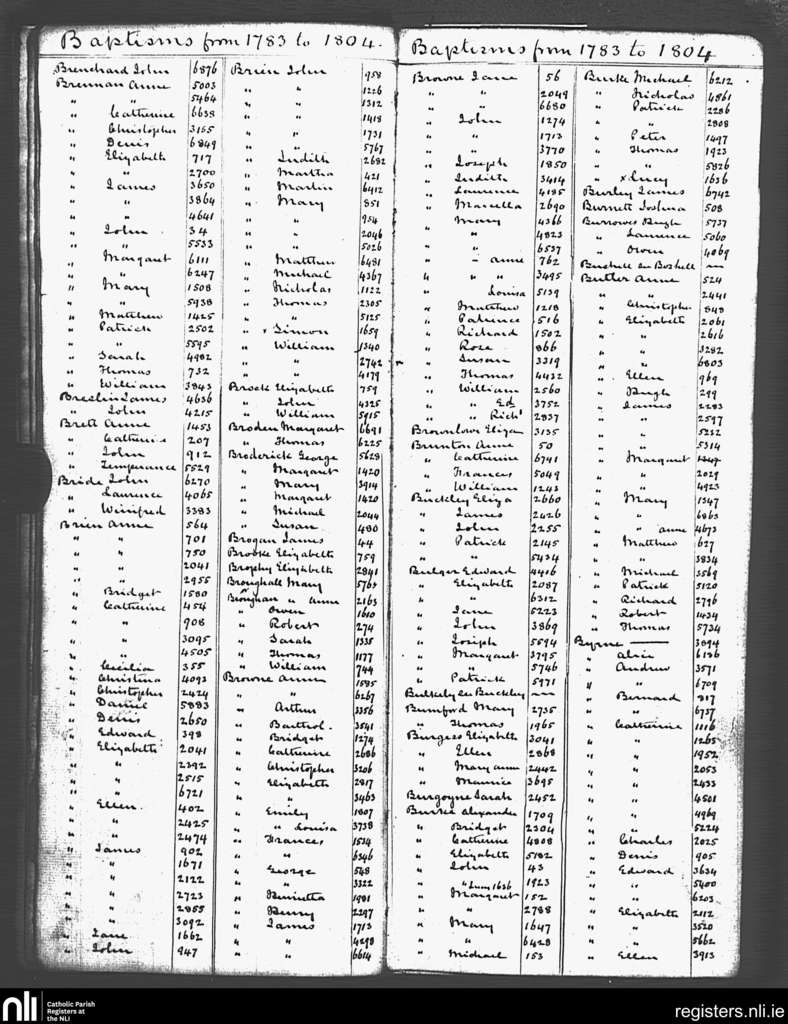 Baptisms from 1783 to 1804.
Brenchard John 6876
Brennan Anne 5003
" " 5464
" Catherine 6638
" Christopher 3155
" Denis 6849
" Elizabeth 717
" " 2700
" James 3650
" " 3864
" " 4641
" John 34
" " 5533
" Margaret 6111
" " 6247
" Mary 1508
" " 5938
" Matthew 1425
" Patrick 2502
" " 5595
" Sarah 4982
" Thomas 732
" William 3843
Breslin James 4636
" John 4215
Brett Anne 1453
" Catherine 207
" John 912
" Temperance 5529
Bride John 6270
" Laurence 4065
" Winifred 3383
Brien Anne 564
" " 701
" " 750
" " 2041
" " 2955
" Bridget 1580
" Catherine 454
" " 908
" " 3095
" " 4505
" Cecilia 355
" Christina 4093
" Christopher 2424
" Daniel 5883
" Denis 2650
" Edward 398
" Elizabeth 2041
" " 2392
" " 2515
" " 6721
" Ellen 402
" " 2425
" " 2474
" James 902
" " 1671
" " 2122
" " 2723
" " 2855
" " 3092
" Jane 1662
" John 947
Brien John 958
" " 1226
" " 1312
" " 1418
" " 1731
" " 5767
" Judith 2682
" Martha 421
" Martin 6412
" Mary 851
" " 954
" " 2046
" " 5026
" Matthew 6481
" Michael 4367
" Nicholas 1122
" Thomas 2305
" " 5125
" x Simon 1659
" William 1340
" " 2742
" " 4179
Brock Elizabeth 759
" John 4325
" William 5915
Broden Margaret 6691
" Thomas 6225
Broderick George 5628
" Margaret 1420
" Mary 3914
" Margaret 1420
" Michael 2044
" Susan 480
Brogan James 44
Brooke Elizabeth 759
Brophy Elizabeth 2841
Broughall Mary 5765
Broughan " Anne 2163
" Owen 1610
" Robert 274
" Sarah 1335
" Thomas 1177
" William 744
Browne Anne 1585
" " 6267
" Arthur 3356
" Barthol. 3541
" Bridget 1274
" Catherine 2686
" Christopher 3206
" Elizabeth 2817
" " 3463
" Emily 1807
" " Louisa 3738
" Frances 1524
" " 6346
" George 548
" " 3322
" Henrietta 1981
" Henry 2297
" James 1713
" " 4298
" " 6614
Baptisms from 1783 to 1804
Browne Jane 56
" " 2049
" " 6680
" John 1274
" " 1713
" " 3770
" Joseph 1850
" Judith 3414
" Laurence 4185
" Marcella 2690
" Mary 4366
" " 4823
" " 6537
" " Anne 762
" " " 3495
" Louisa 5139
" Matthew 1218
" Patience 516
" Richard 1502
" Rose 866
" Susan 3319
" Thomas 4432
" William 2560
" " Ed. 3752
" " Rich 2837
Brownlowe Eliza 3135
Brunton Anne 50
" Catherine 6741
" Frances 5049
" William 1243
Buckley Eliza 2660
" James 2426
" John 2255
" Patrick 2145
" " 5434
Bulger Edward 4416
" Elizabeth 2087
" " 6312
" Jane 5223
" John 3869
" Joseph 5594
" Margaret 3795
" " 5746
" Patrick 5971
Bulkeley See Buckley —
Bumford Mary 2735
" Thomas 1965
Burgess Elizabeth 3041
" Ellen 2868
" Mary anne 2442
" Maurice 3695
Burgoyne Sarah 2452
Burke Alexander 1709
" Bridget 2304
" Catherine 4808
" Elizabeth 5182
" John 43
" " Lucy 1636 1923
" Margaret 152
" " 2788
" Mary 1647
" " 6428
" Michael 153
Burke Michael 6212
" Nicholas 4861
" Patrick 2286
" " 2808
" Peter 1497
" Thomas 1923
" " 5826
" x Lucy 1636
Burley James 6742
Burnett Joshua 508
Burrowes Hugh 5737
" Laurence 5060
" Owen 4069
Bushell See Boshell —
Butler Anne 524
" " 2441
" Christopher 848
" Elizabeth 2061
" " 2616
" " 3282
" " 6803
" Ellen 969
" Hugh 299
" James 2283
" " 2597
" " 5212
" " 5314
" Margaret 1347
" " 2029
" " 4923
" Mary 1347
" " 6863
" " anne 4673
" Matthew 627
" " 3834
" Michael 3569
" Patrick 5120
" Richard 2796
" Robert 1434
" Thomas 5734
Byrne — 3894
" Alice 6136
" Andrew 3571
" " 6709
" Bernard 817
" " 6737
" Catherine 1116
" " 1265
" " 1952
" " 2053
" " 2433
" " 4501
" " 4969
" " 5224
" Charles 2025
" Denis 905
" Edward 3634
" " 5400
" " 6203
" Elizabeth 2112
" " 3520
" " 5662
" Ellen 3913
nli
Catholic Parish
Registers at
the NLI
registers.nli.ie